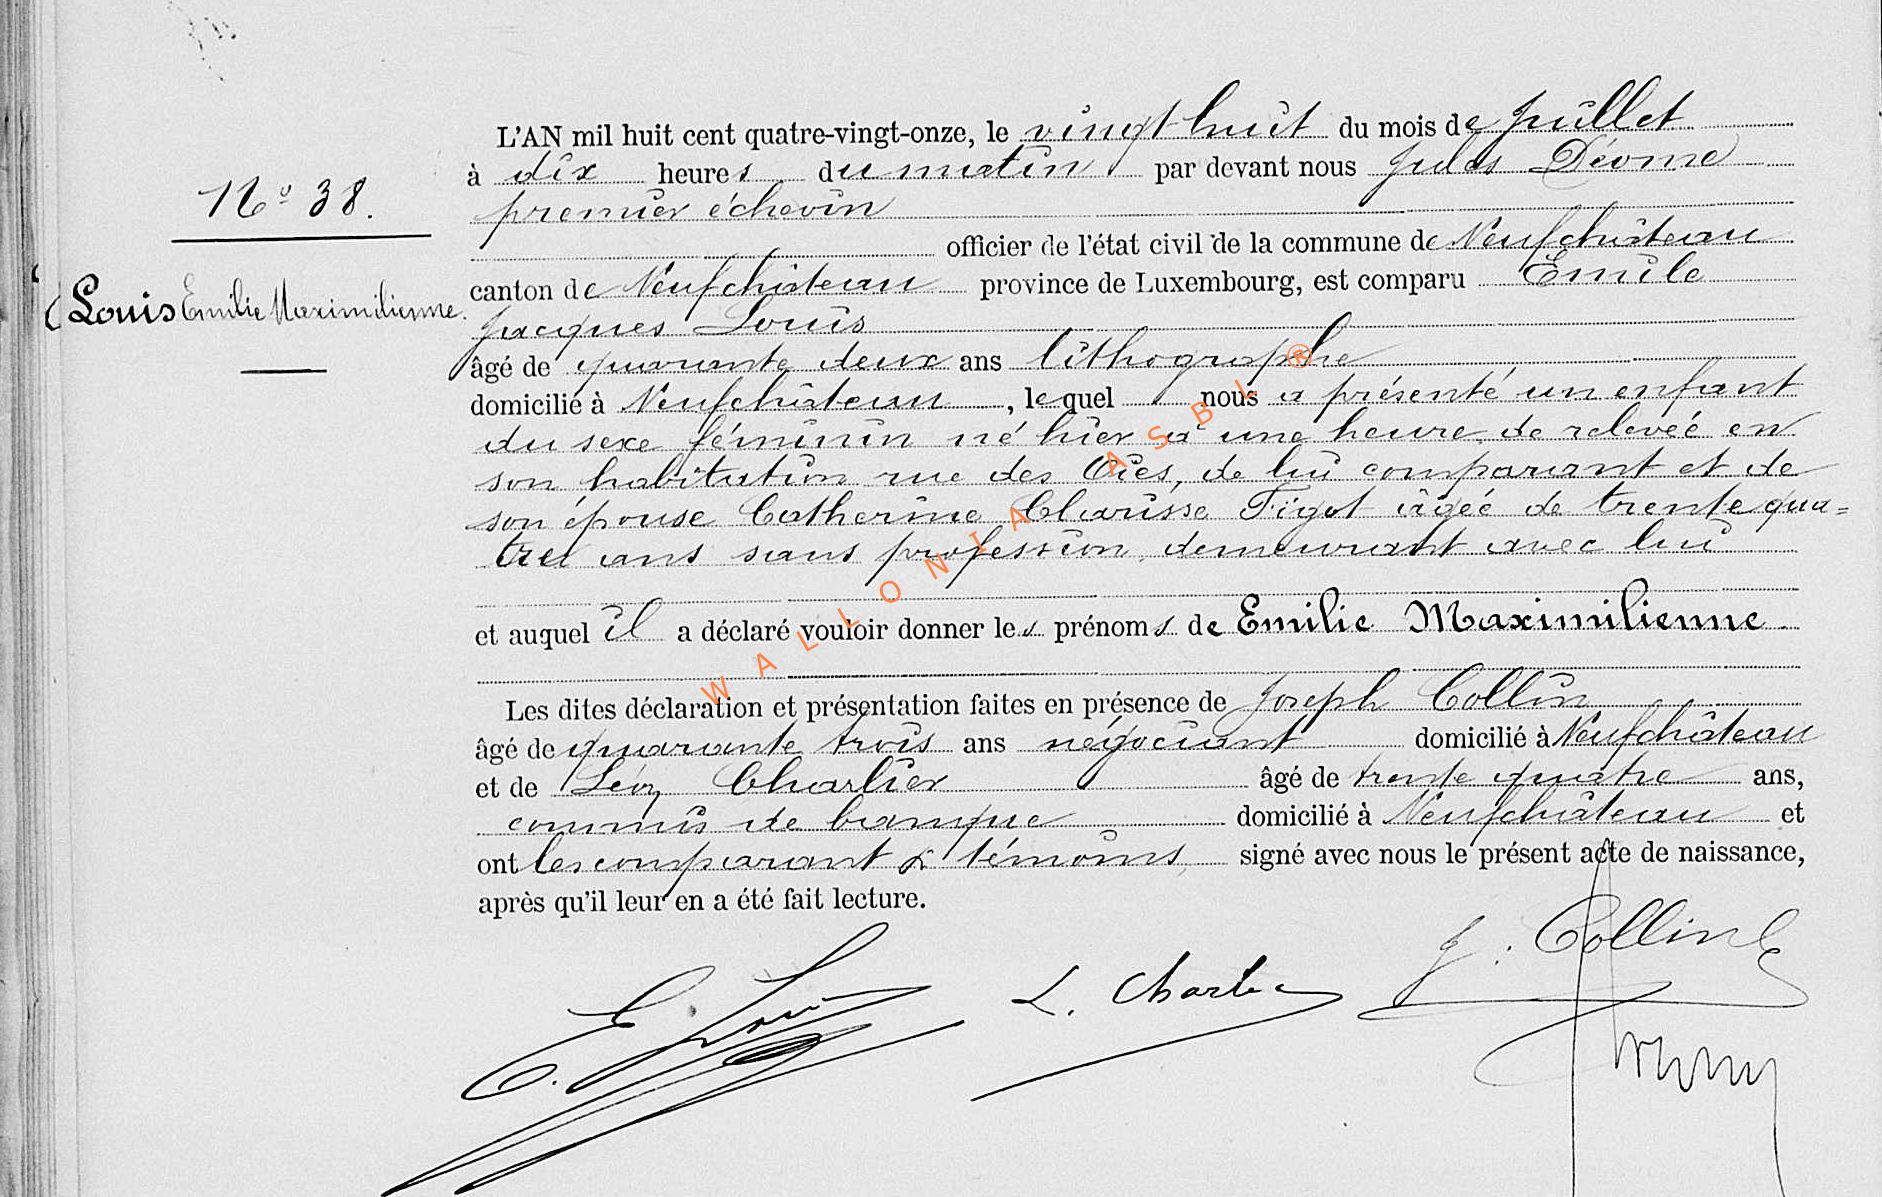 L'AN mil huit cent quatre-vingt-onze, le vingt huit du mois de Juillet
à dix heures du matin par devant nous Jules Déome
premier échevin
officier de l'état civil de la commune de Neufchâteau
canton de Neufchâteau province de Luxembourg, est comparu Emile
Jacques Louis
âgé de quarante deux ans lithographe
domicilié à Neufchâteau, lequel nous a présenté un enfant
du sexe féminin né hier à une heure de relevée en
son habitation rue des Oies, de lui comparant et de
son épouse Catherine Clarisse Figot âgée de trente qua=
tre ans sans profession, demeurant avec lui
et auquel il a déclaré vouloir donner les prénoms de Emilie Maximilienne
Les dites déclaration et présentation faites en présence de Joseph Collin
âgé de quarante trois ans négociant domicilié à Neufchâteau
et de Léon Charlier âgé de trente quatre ans,
commis de banque domicilié à Neufchâteau et
ont les comparant & témoins, signé avec nous le présent acte de naissance,
après qu'il leur en a été fait lecture.
N° 38.
Louis Emilie Maximilienne.
E. Louis
L. Charlier
J. Collin
WALLONIA ASBL ®